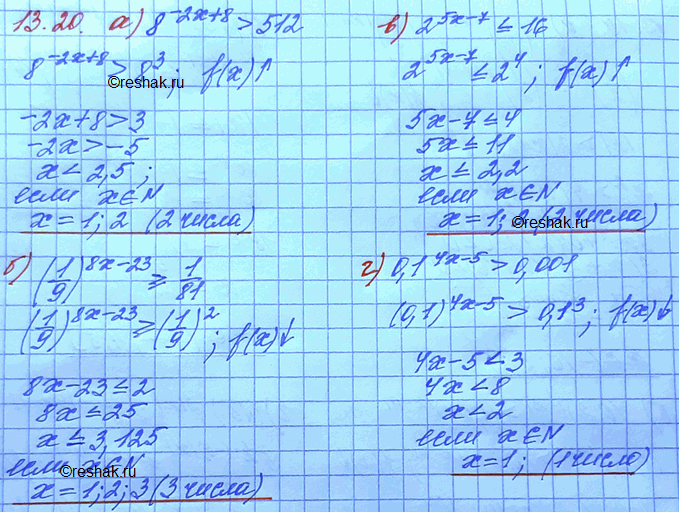 13.20. а) 8^(-2x+8) > 512
8^(-2x+8) > 8^3; f(x)↑
©reshak.ru
-2x+8 > 3
-2x > -5
x < 2,5;
если x∈N
x = 1; 2 (2 числа)
б) (1/9)^(8x-23) ≥ 1/81
(1/9)^(8x-23) ≥ (1/9)^2; f(x)↓
8x-23 ≤ 2
8x ≤ 25
x ≤ 3,125
если x∈N
©reshak.ru
x = 1; 2; 3 (3 числа)
в) 2^(5x-7) ≤ 16
2^(5x-7) ≤ 2^4; f(x)↑
5x-7 ≤ 4
5x ≤ 11
x ≤ 2,2
если x∈N
x = 1; 2 (2 числа)
©reshak.ru
г) 0,1^(4x-5) > 0,001
(0,1)^(4x-5) > 0,1^3; f(x)↓
4x-5 < 3
4x < 8
x < 2
если x∈N
x = 1; (1 число)
©reshak.ru